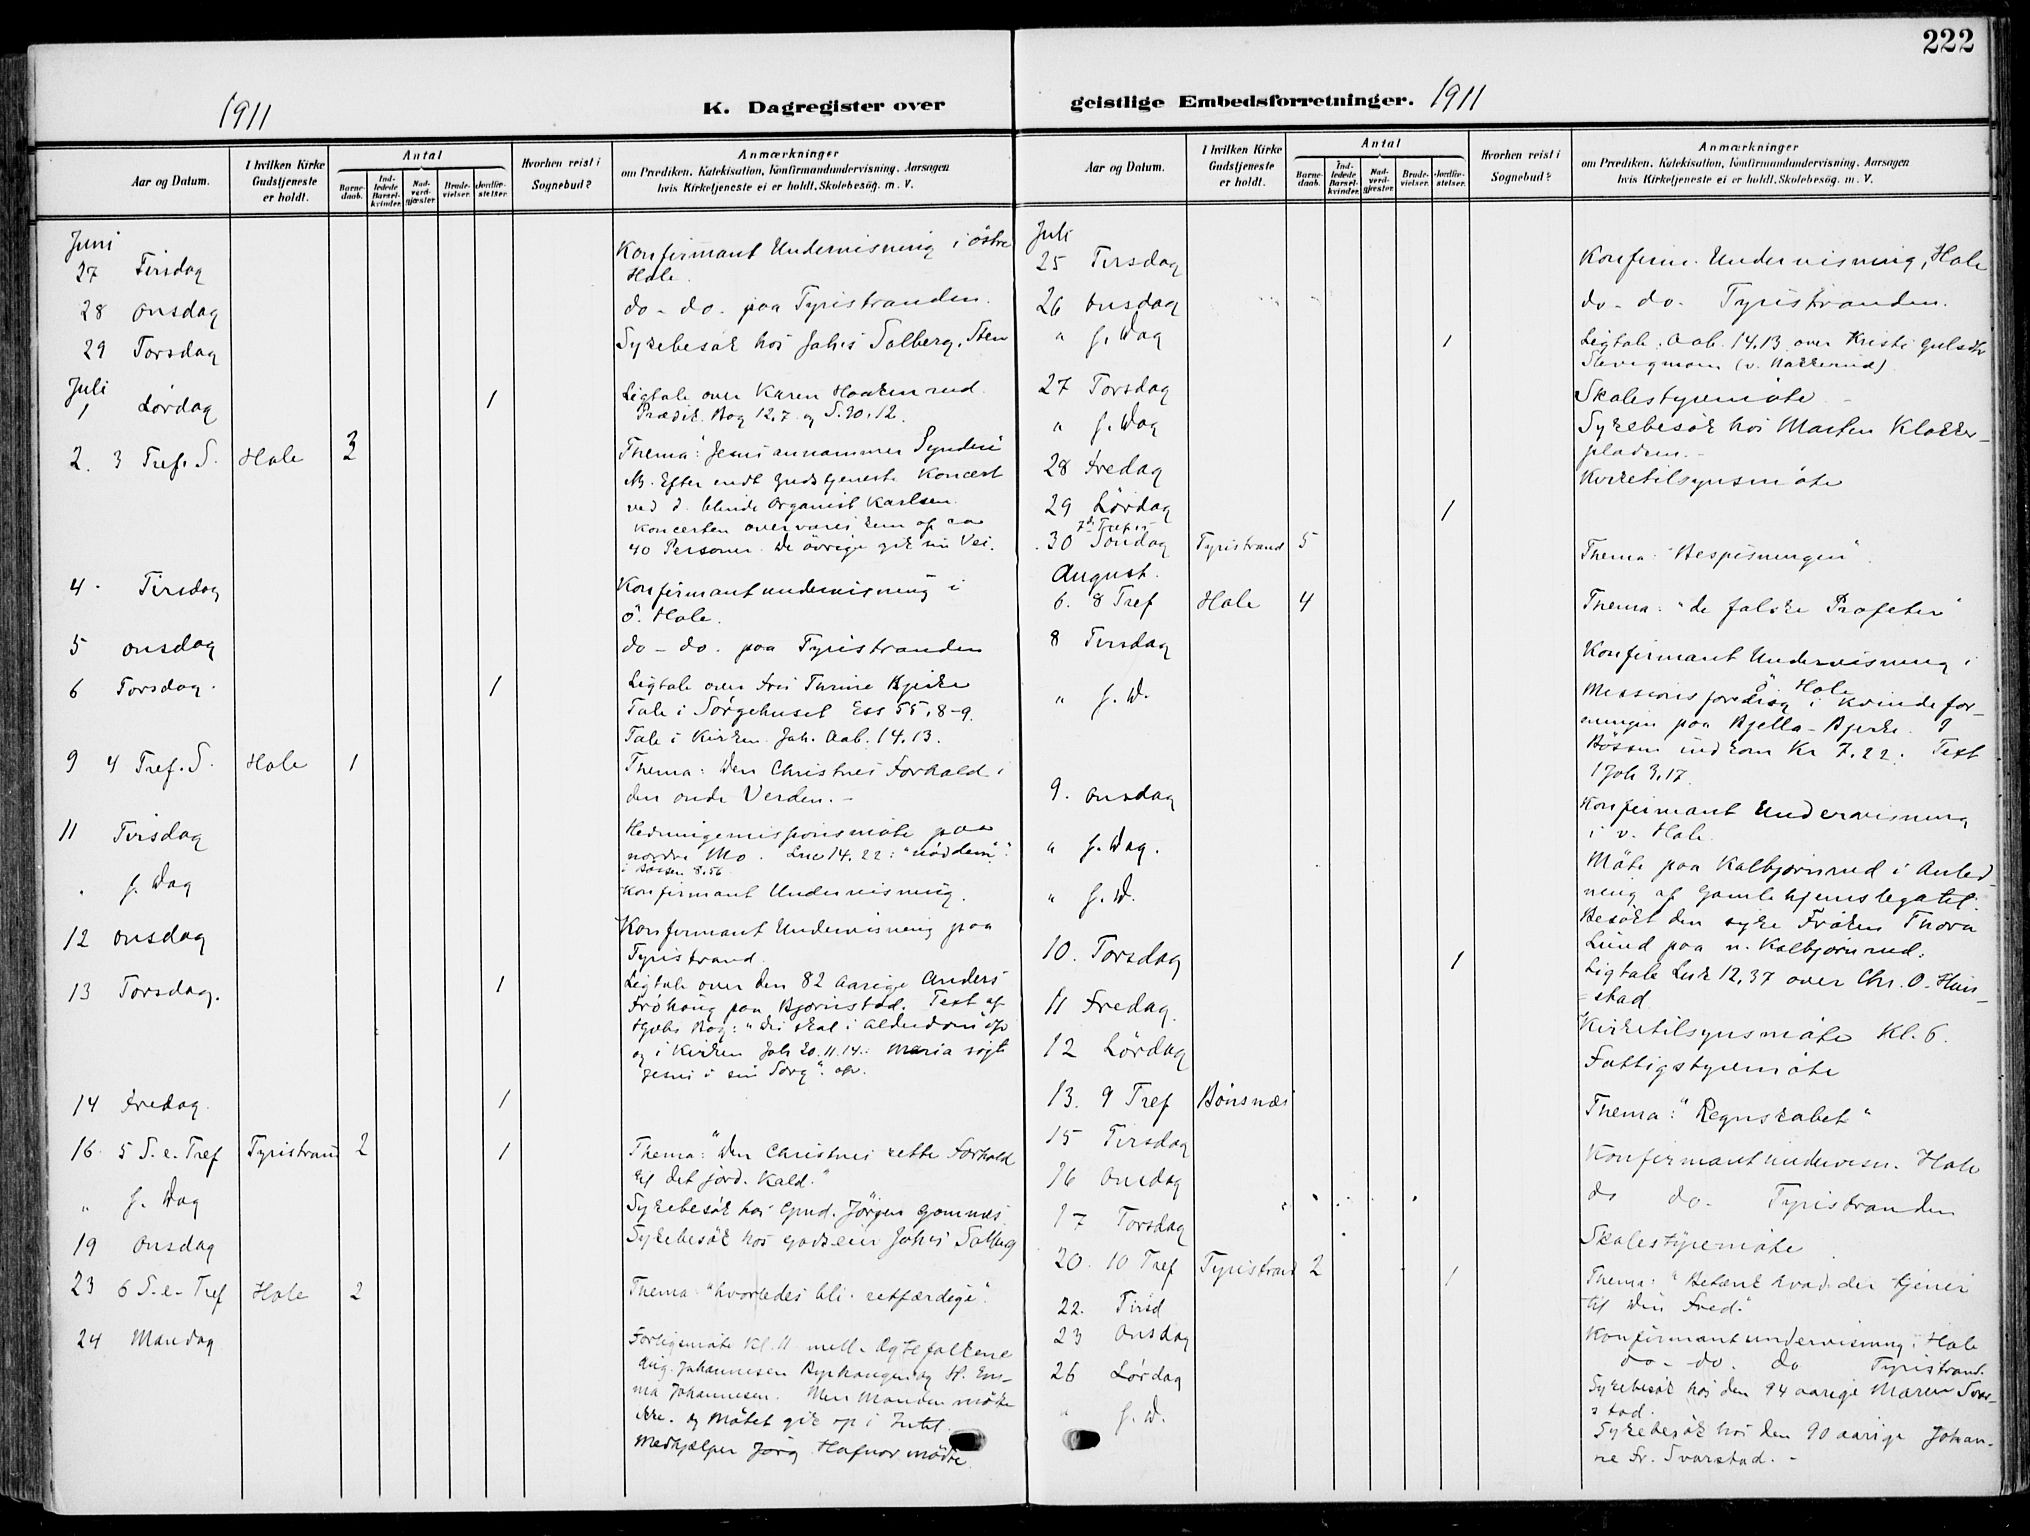 222
1911
K. Dagregister over
geistlige Embedsforretninger. 1911
Aar og Datum.
I hvilken Kirke
Gudstjeneste
er holdt.
Antal
Barne-
daab.
Ind-
ledede
Barsel-
kvinder.
Nad-
verd-
gjæster.
Brude-
vielser.
Jordfæ-
stelser.
Hvorhen reist i
Sognebud?
Anmærkninger
om Prædiken, Katekisation, Konfirmandundervisning, Aarsagen
hvis Kirketjeneste ei er holdt, Skolebesøg, m. V.
Juni
27 Tirsdag Konfirmant Undervisning i östre
Hole.
28 onsdag do - do. paa Tyristranden.
29 Torsdag Sykebesök hos Johs Solberg, Sten
Juli
1 Lørdag 1 Ligtale over Karen Haakenrud.
Prædik. Bog 12.7. og S. 30.12.
2. 3 Tref. S. Hole 3 Thema: "Jesus annammer Syndere"
NB. Efter endt Gudstjeneste Koncert
ved d. blinde Organist Karlsen.
Koncerten overvares kun af ca
40 Personer. De övrige gik sin Vei.
4. Tirsdag Konfirmantundervisning i
ö. Hole.
5 onsdag do - do. paa Tyristranden
6 Torsdag. 1 Ligtale over Frk Thrine Bjerke
Tale i Sørgehuset Ess 55, 8-9.
Tale i Kirken Joh. Aab. 14.13.
9 4 Tref. S. Hole 1 Thema: Den Christnes Forhold i
den onde Verden. -
11 Tirsdag Hedningemissionsmöte paa
nordre Mo. Luc 14.22: "nöddem".
i Bössen 8.56
. s. Dag Konfirmant Undervisning.
12 onsdag Konfirmant Undervisning paa
Tyristrand.
13 Torsdag. 1 Ligtale over den 82 aarige Anders
Fröhaug paa Bjørnstad. Text af
Hjobs Bog: "Du skal i Alderdom" osv
og i Kirken Joh 20.11.14: Maria søgte
"Jesus i sin Sorg". osv.
14 Fredag. 1
16. 5 S. e. Tref Tyristrand 2 1 Thema: "Den Christnes rette Forhold
til det jord. Kald."
" s. Dag Sykebesök hos Gmd. Jörgen Gomnæs.
19 onsdag Sykebesök hos Godseier Johs Solberg
23 6 S. e. Tref Hole 2 Thema: "hvorledes bli retfærdige".
24 Mandag Forligsmöte Kl. 11 mell. Egtefolkene
Aug. Johannesen Byrhaugen og H. Em-
ma Johannesen. Men Manden mötte
ikke. og Mötet gik op i Intet.
Medhjælper Jörg Hafnor mödte.
Aar og Datum.
I hvilken Kirke
Gudstjeneste
er holdt.
Antal
Barne-
daab.
Ind-
ledede
Barsel-
kvinder.
Nad-
verd-
gjæster.
Brude-
vielser.
Jordfæ-
stelser.
Hvorhen reist i
Sognebud?
Anmærkninger
om Prædiken, Katekisation, Konfirmandundervisning, Aarsagen
hvis Kirketjeneste ei er holdt, Skolebesøg, m. V.
Juli
25 Tirsdag Konfirm. Undervisning, Hole
26 onsdag do - do - Tyristranden.
" s. Dag 1 Ligtale. Aab. 14.13. over Kristi
(v. Nakkerud).
27 Torsdag Skolestyremöte -
" s. Dag Sykebesök hos Morten Klokker-
pladsen. -
28 Fredag Kirketilsynsmöte
29 Lördag 1
7de Tref.
30 Söndag Tyristrand 5 Thema: "Bespisningen".
August.
6. 8 Tref Hole 4 Thema: "de falske Profeter"
8 Tirsdag Konfirmant Undervisning i
ö. Hole
" s. D. Missionsforedrag i Kvindefor-
ningen paa Bjella-Bjerke. I
Bössen indkom Kr 7.22. Text
1 Joh 3.17.
9. onsdag Konfirmant Undervisning
i v. Hole.
" s. Dag. Möte paa Kolbjørnrud i Anled-
ning af Gamlehjemslegatet.
" s. D. Besökt den syke Fröken Thora
Lund paa n. Kolbjørnrud.
10. Torsdag 1 Ligtale Luk 12,37 over Chr. O. Hun-
stad.
11 Fredag. Kirketilsynsmöte Kl. 6.
12 Lördag Fattigstyremöte
13. 9 Tref Bönsnæs Thema: "Regnskabet"
15 Tirsdag Konfirmantundervisn. Hole
16 Onsdag do do - Tyristranden
17 Torsdag Skolestyremöte.
20. 10 Tref Tyristrand 2 1 Thema: "Betænk hvad der tjener
til din Fred."
22. Tirsd Konfirmantundervisning. Hole
23 Onsdag do - do. do Tyristrand.
26 Lørdag Sykebesök hos den 94 aarige Maren Svar-
stad.
" s. D. Sykebesök hos den 90 aarige Johan-
ne Fr. Svarstad. -